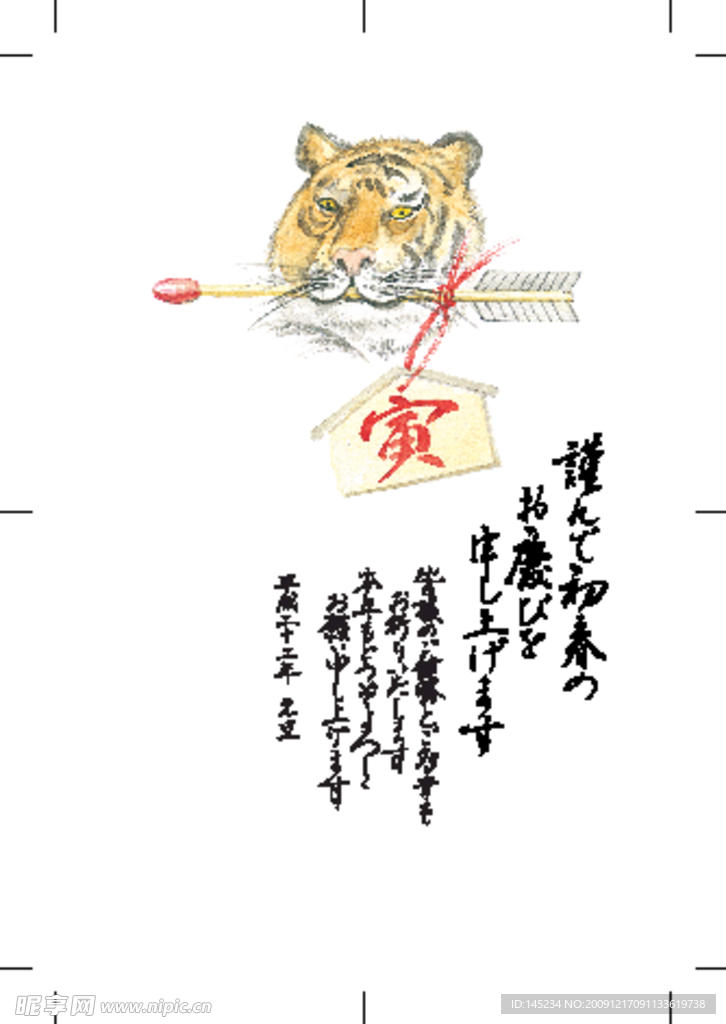 寅
謹んで初春の
お慶びを
申し上げます
皆様のご健康とご多幸を
お祈りいたします
本年もどうぞよろしく
お願い申し上げます
平成二十二年 元旦
昵享网 www.nipic.cn
ID:145234 NO:20091217091133619738